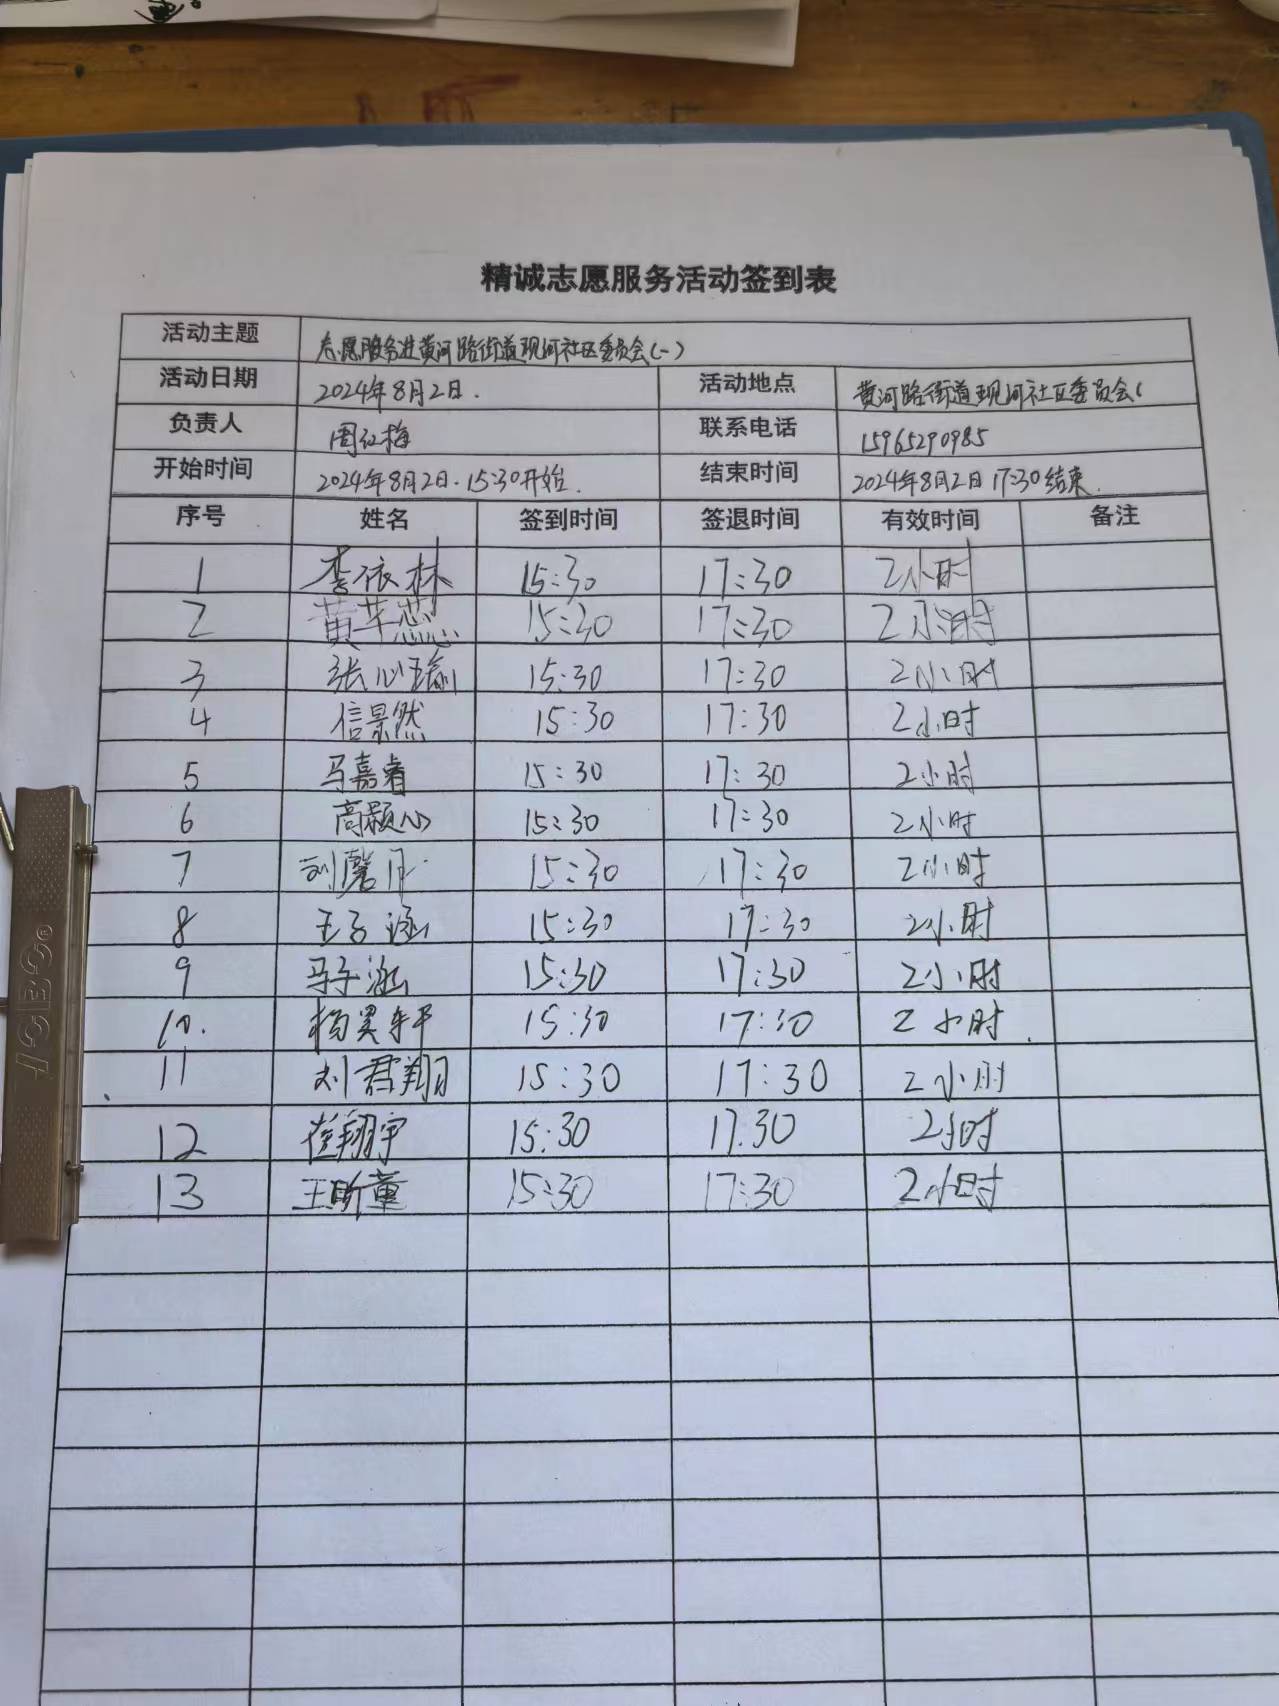 精诚志愿服务活动签到表
活动主题 志愿服务进黄河路街道现河社区委员会(一)
活动日期 2024年8月2日. 活动地点 黄河路街道现河社区委员会(
负责人 周红梅 联系电话 15965290985
开始时间 2024年8月2日.15:30开始. 结束时间 2024年8月2日 17:30结束.
序号 姓名 签到时间 签退时间 有效时间 备注
1 李依林 15:30 17:30 2小时
2 黄芊蕊 15:30 17:30 2小时
3 张心瑜 15:30 17:30 2小时
4 信景然 15:30 17:30 2小时
5 马嘉睿 15:30 17:30 2小时
6 高颢心 15:30 17:30 2小时
7 刘馨月 15:30 17:30 2小时
8 王子涵 15:30 17:30 2小时
9 马子涵 15:30 17:30 2小时
10. 杨昊轩 15:30 17:30 2小时.
11 刘君翔 15:30 17:30 2小时
12 崔翔宇 15:30 17.30 2小时
13 王昕童 15:30 17:30 2小时